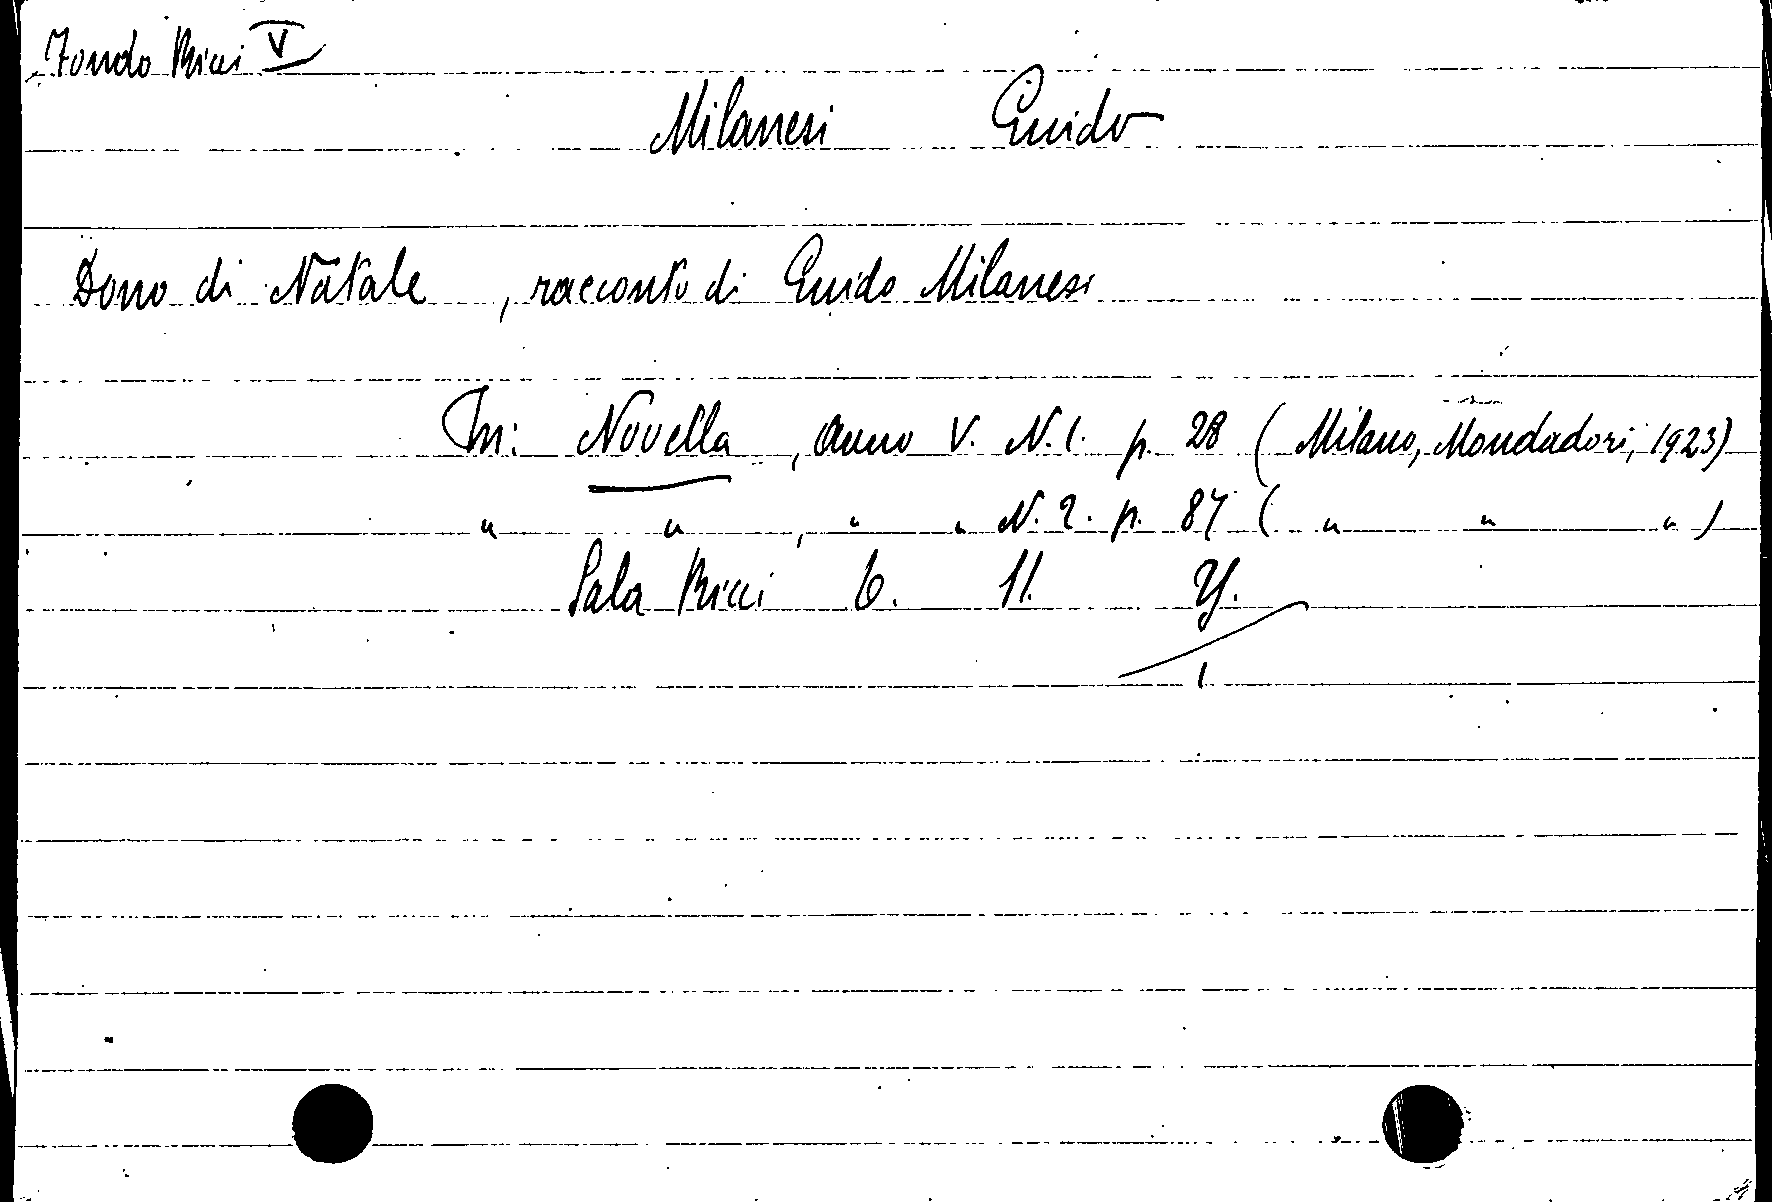 Fondo Ricci V
Milanesi Guido
Dono di Natale, racconto di Guido Milanesi
In: Novella, anno V. N. 1. p. 28 (Milano, Mondadori, 1923)
" " , " " N. 2. p. 87 ( " " " )
Sala Ricci 6. 11.
1